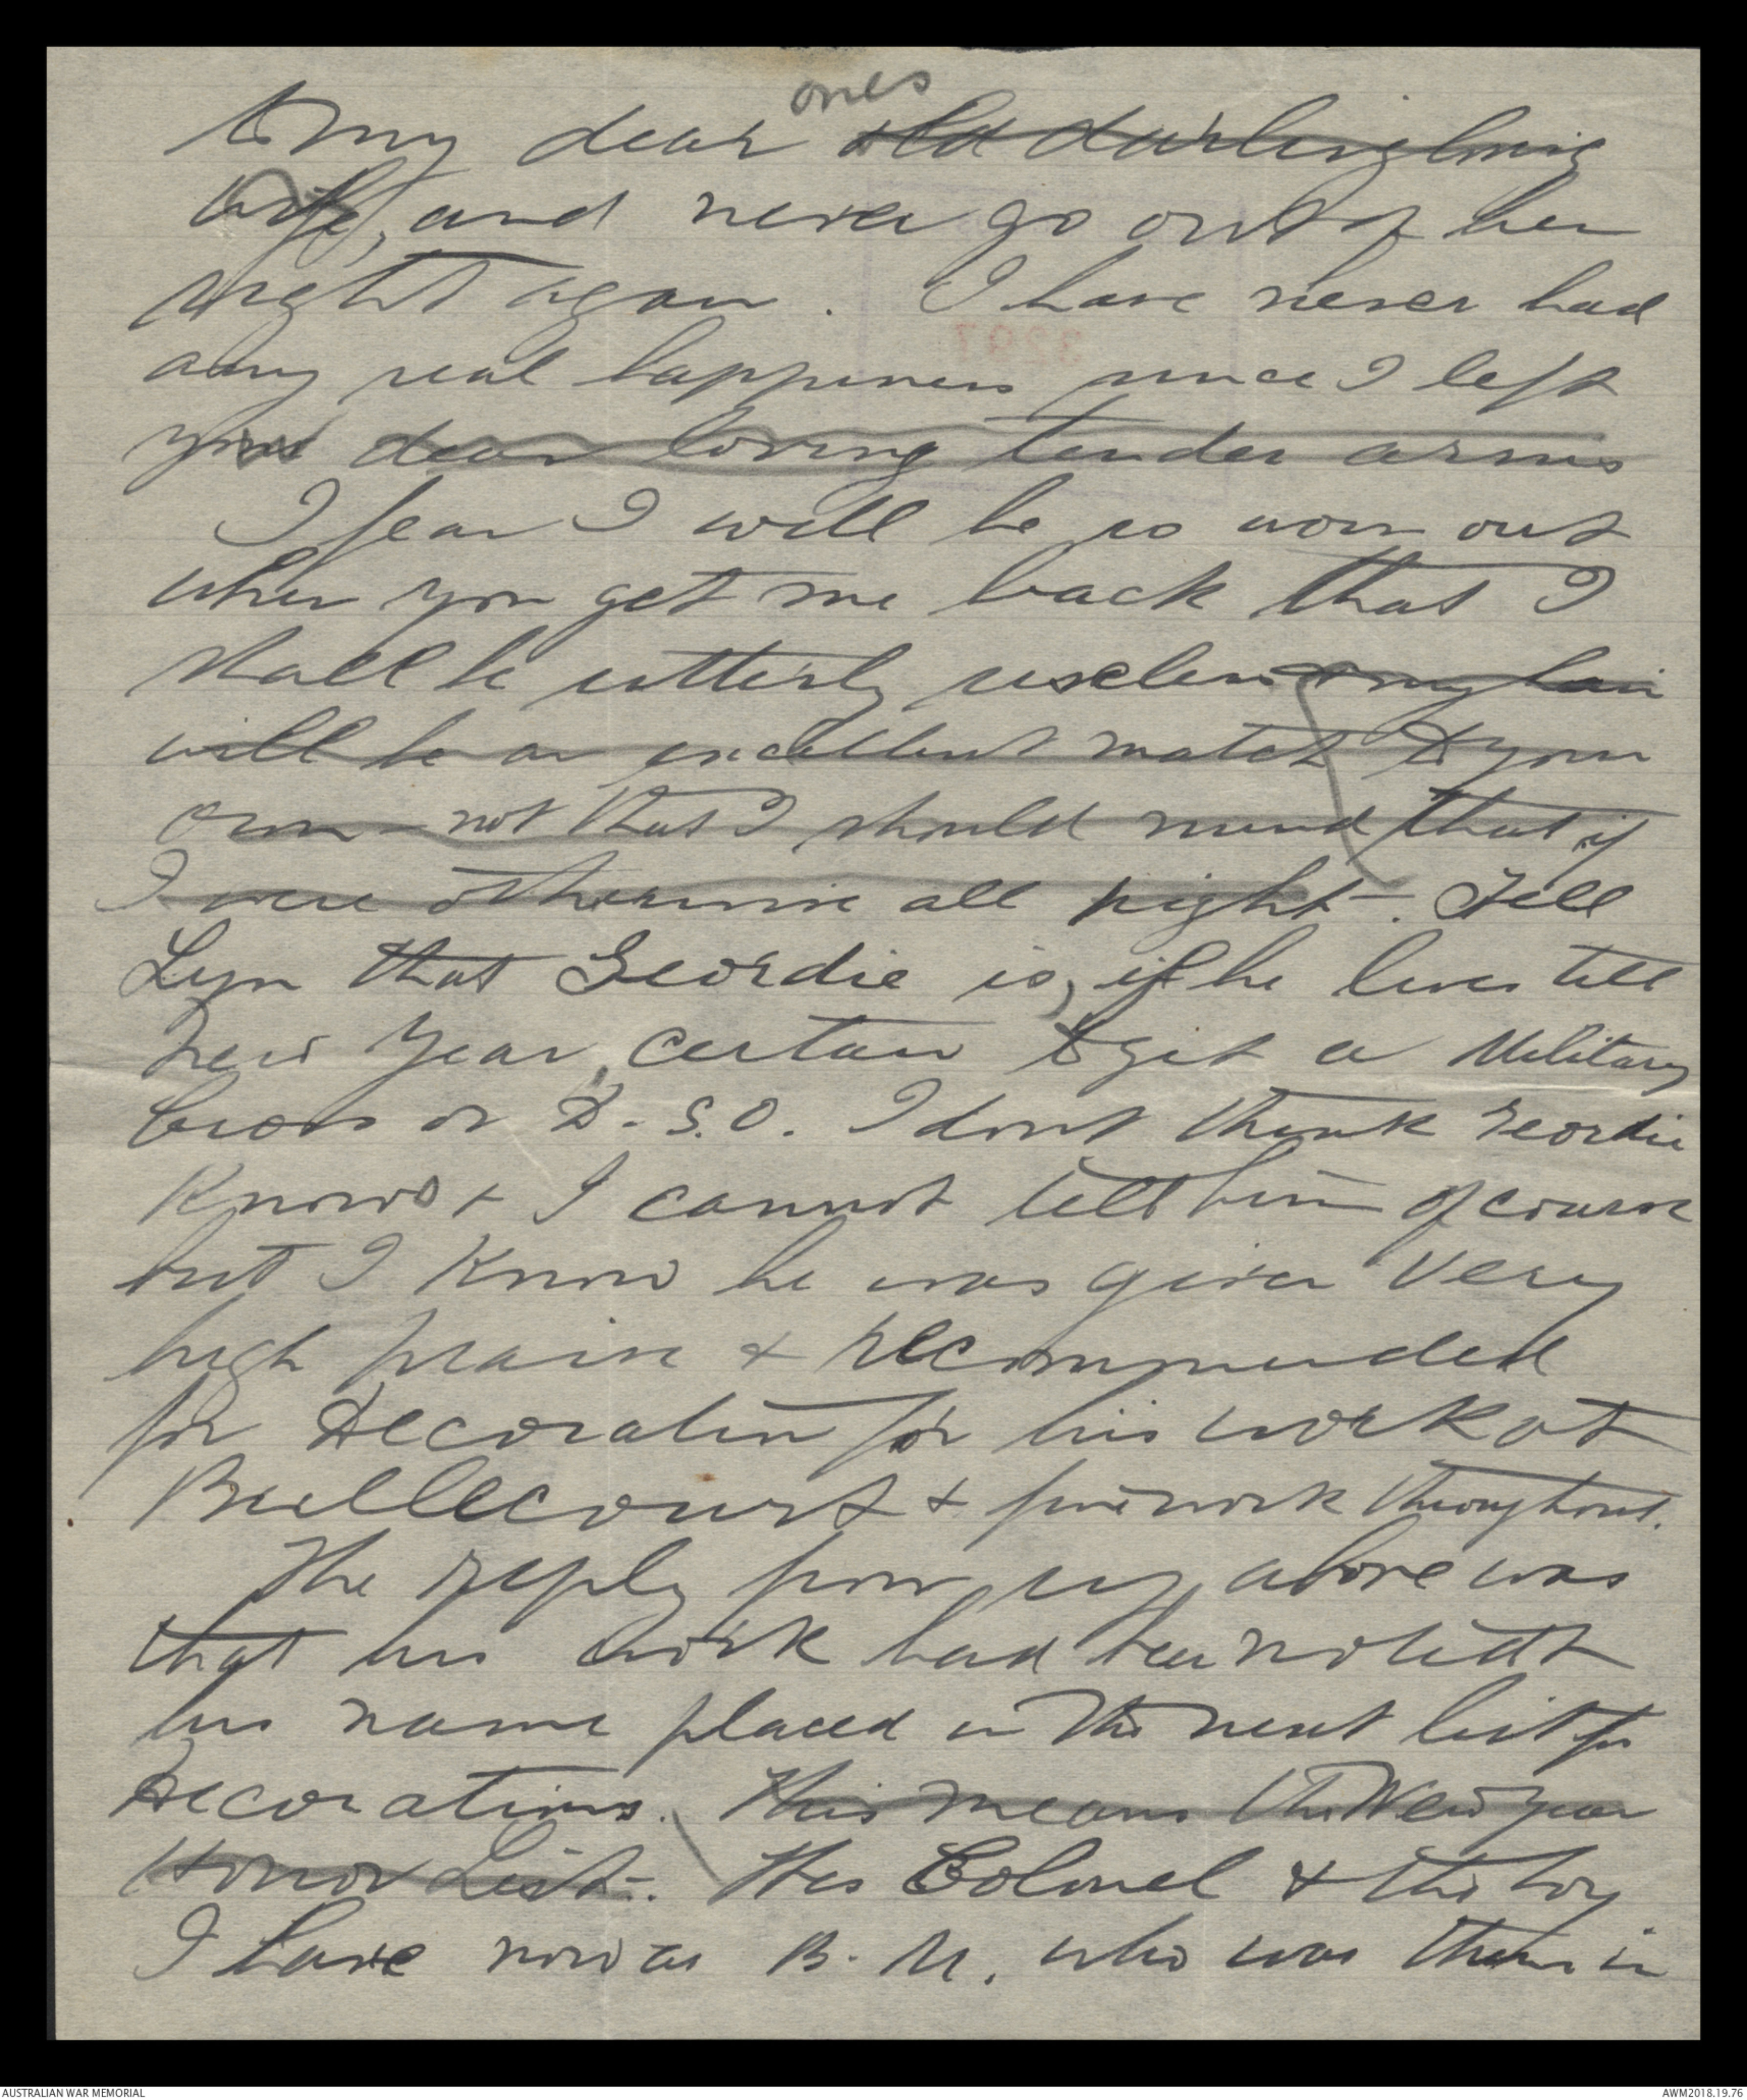 ones
to my dear old darling loving
wife, and never go out of her
sight again. I have never had
any real happiness since I left
your dear loving tender arms
I fear I will be so worn out
when you get me back that I
shall be utterly useless & my hair
will be an excellent match to your
own - not that I should mind that if
I were otherwise all right. Tell
Lyn that Geordie is, if he lives till
New Year, certain to get a Military
Cross or D.S.O. I dont think Geordie
knows & I cannot tell him of course
but I know he was given very
high praise & recommended
for Decoration for his work at
Bullecourt & fine work throughout.
The reply from up above was
that his work had been noted &
his name placed in the next list for
Decorations. This means the New Year
Honor List. His Colonel & the boy
I have now as B.M. who was then in
3297
AUSTRALIAN WAR MEMORIAL
AWM2018.19.76